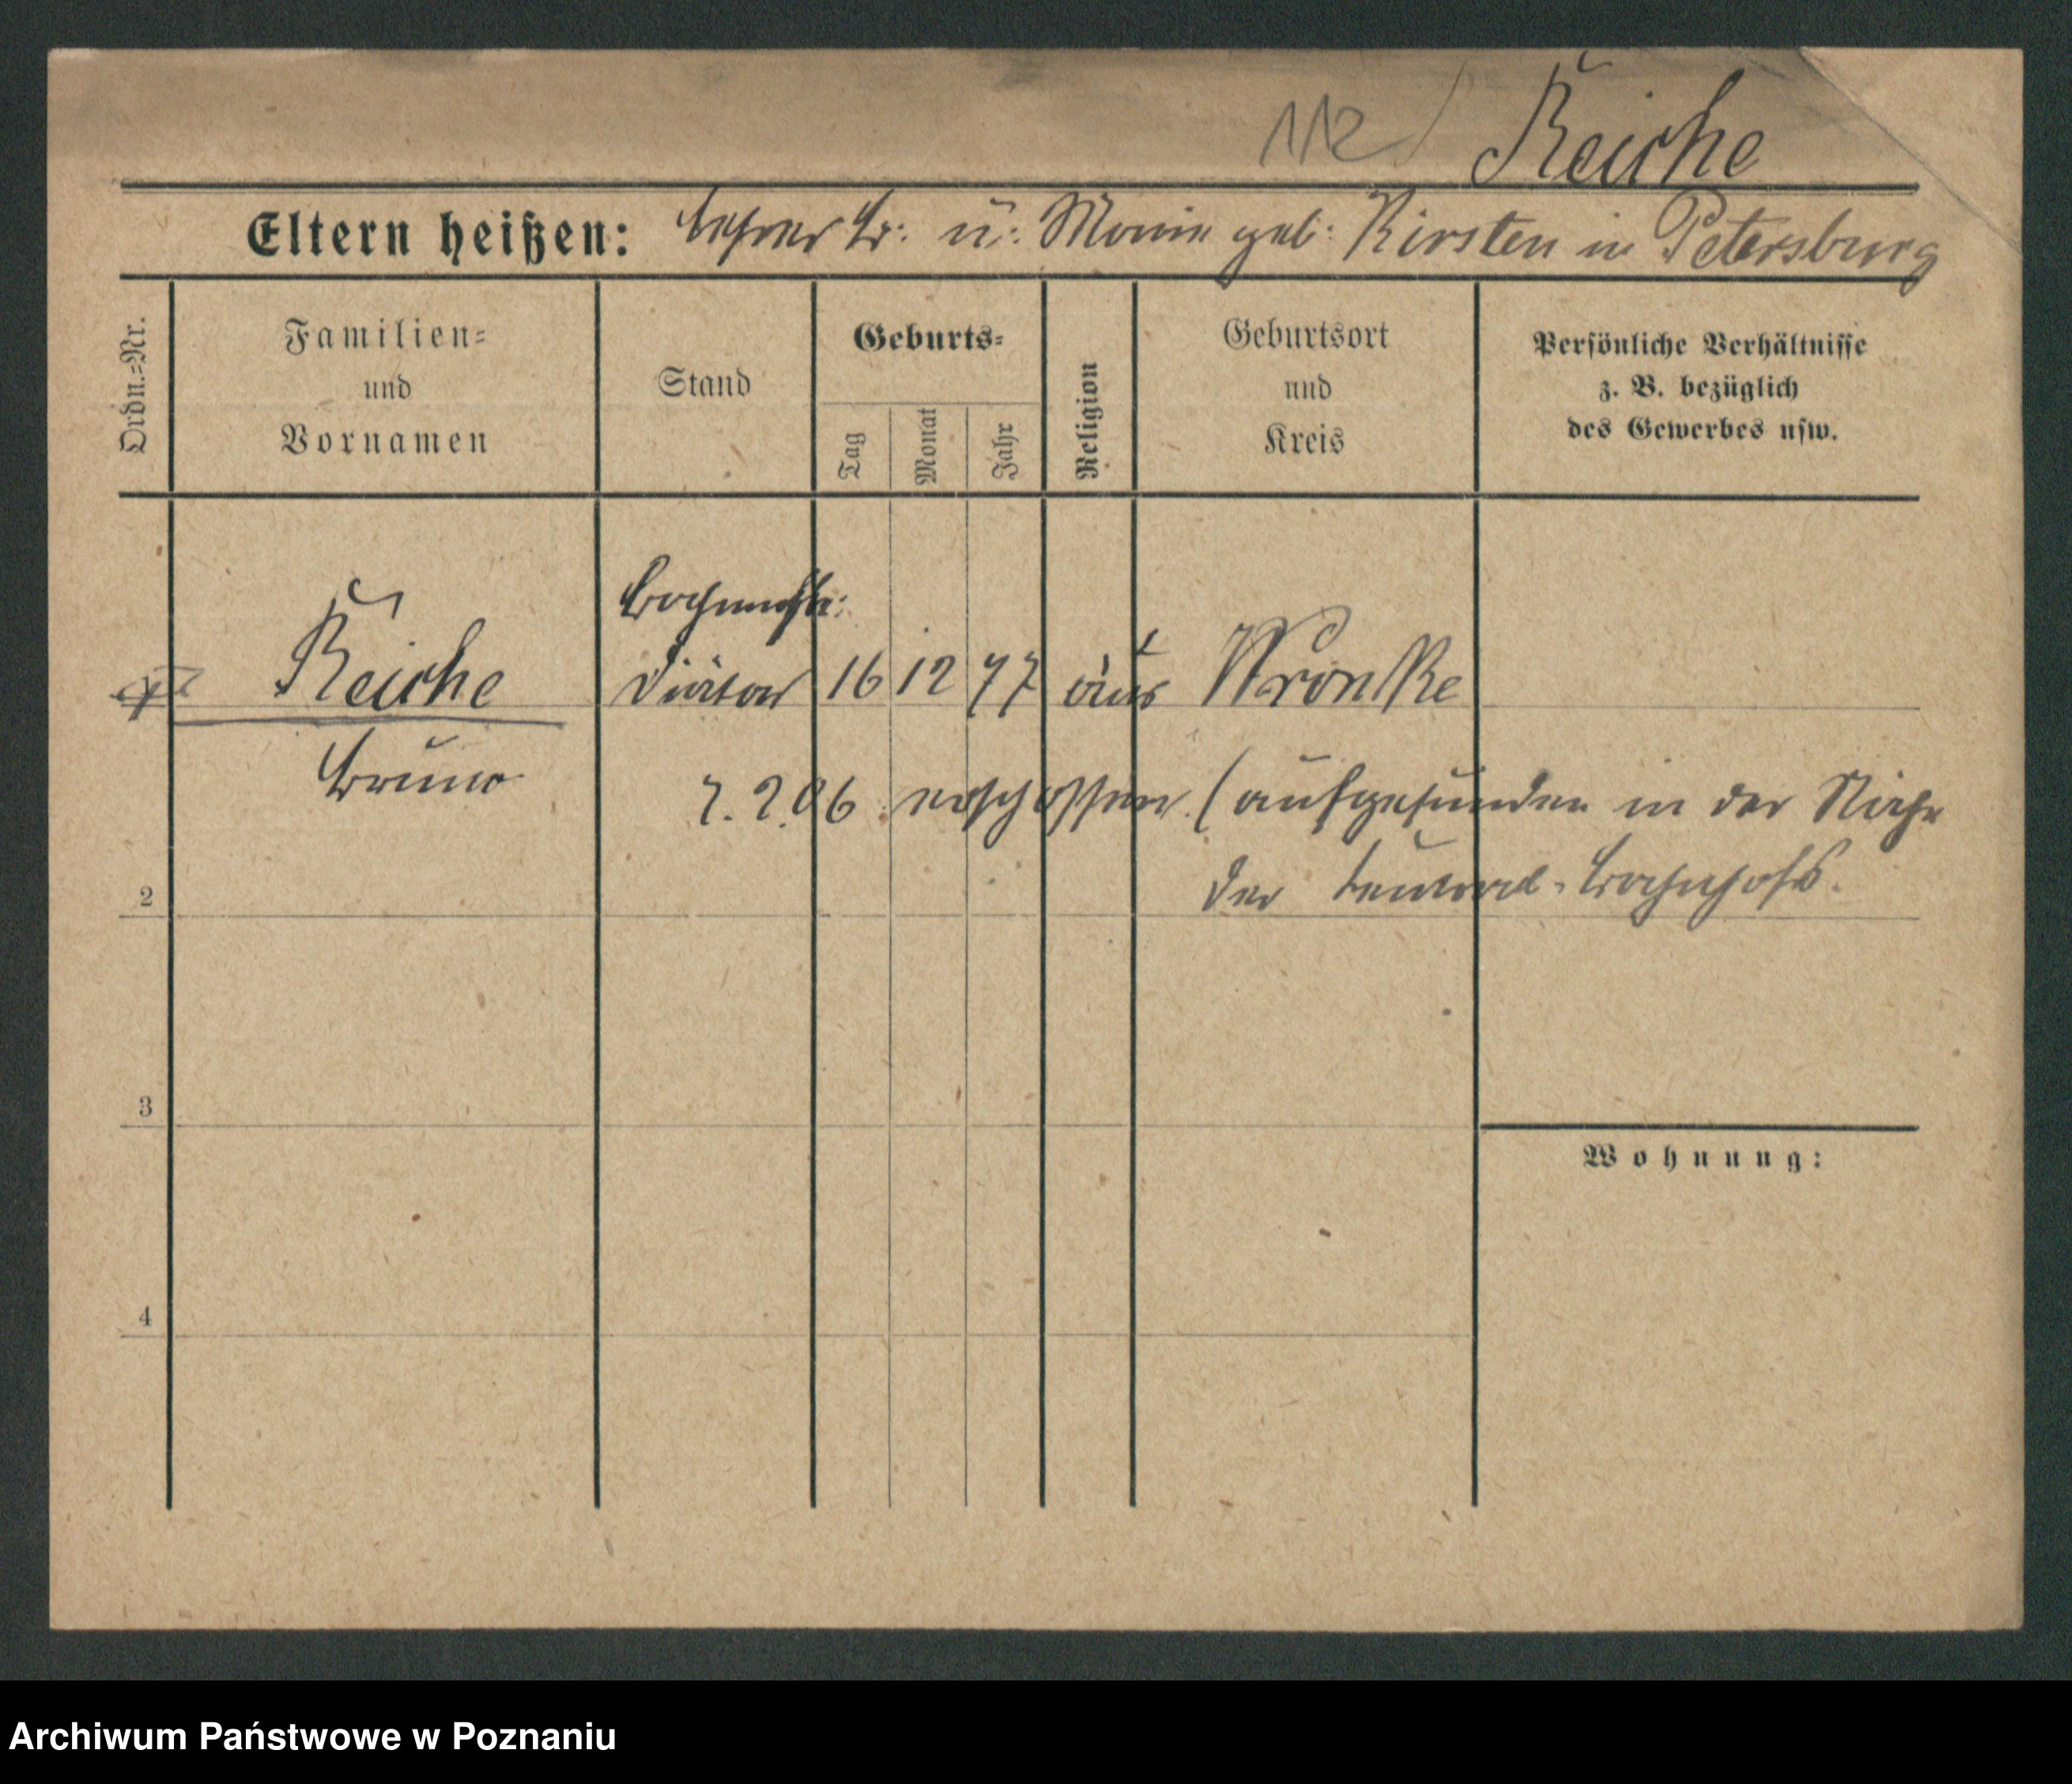 112 Reiche
Eltern heißen: Lehrer Br. u. Marie geb: Kirsten in Petersburg
Ordn.=Nr.
Familien=
und
Vornamen
Stand
Geburts=
Tag
Monat
Jahr
Religion
Geburtsort
und
Kreis
Persönliche Verhältnisse
z. B. bezüglich
des Gewerbes usw.
Reiche Diätar 16 12 77 Wronke
Bruno
7. 2. 06 erschossen. (aufgefunden in der Nähe
des Central-Bahnhofs.
2
3
Wohnung:
4
Archiwum Państwowe w Poznaniu